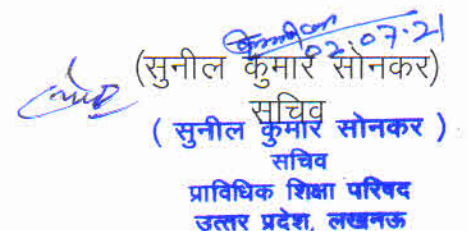 02.07.21
(सुनील कुमार सोनकर)
सचिव
( सुनील कुमार सोनकर )
सचिव
प्राविधिक शिक्षा परिषद
उत्तर प्रदेश, लखनऊ